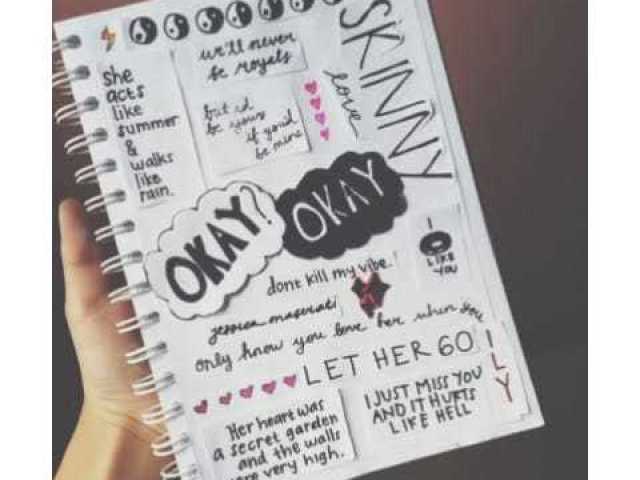 she
acts
like
summer
&
walks
like
rain.
we'll never
be royals
but i'd
be yours
if you'd
be mine
SKINNY
love
OKAY?
OKAY
I
LIKE
YOU
dont kill my vibe!
jessica
only know you love her when you
LET HER GO
ILY
I JUST MISS YOU
AND IT HURTS
LIKE HELL
Her heart was
a secret garden
and the walls
were very high.